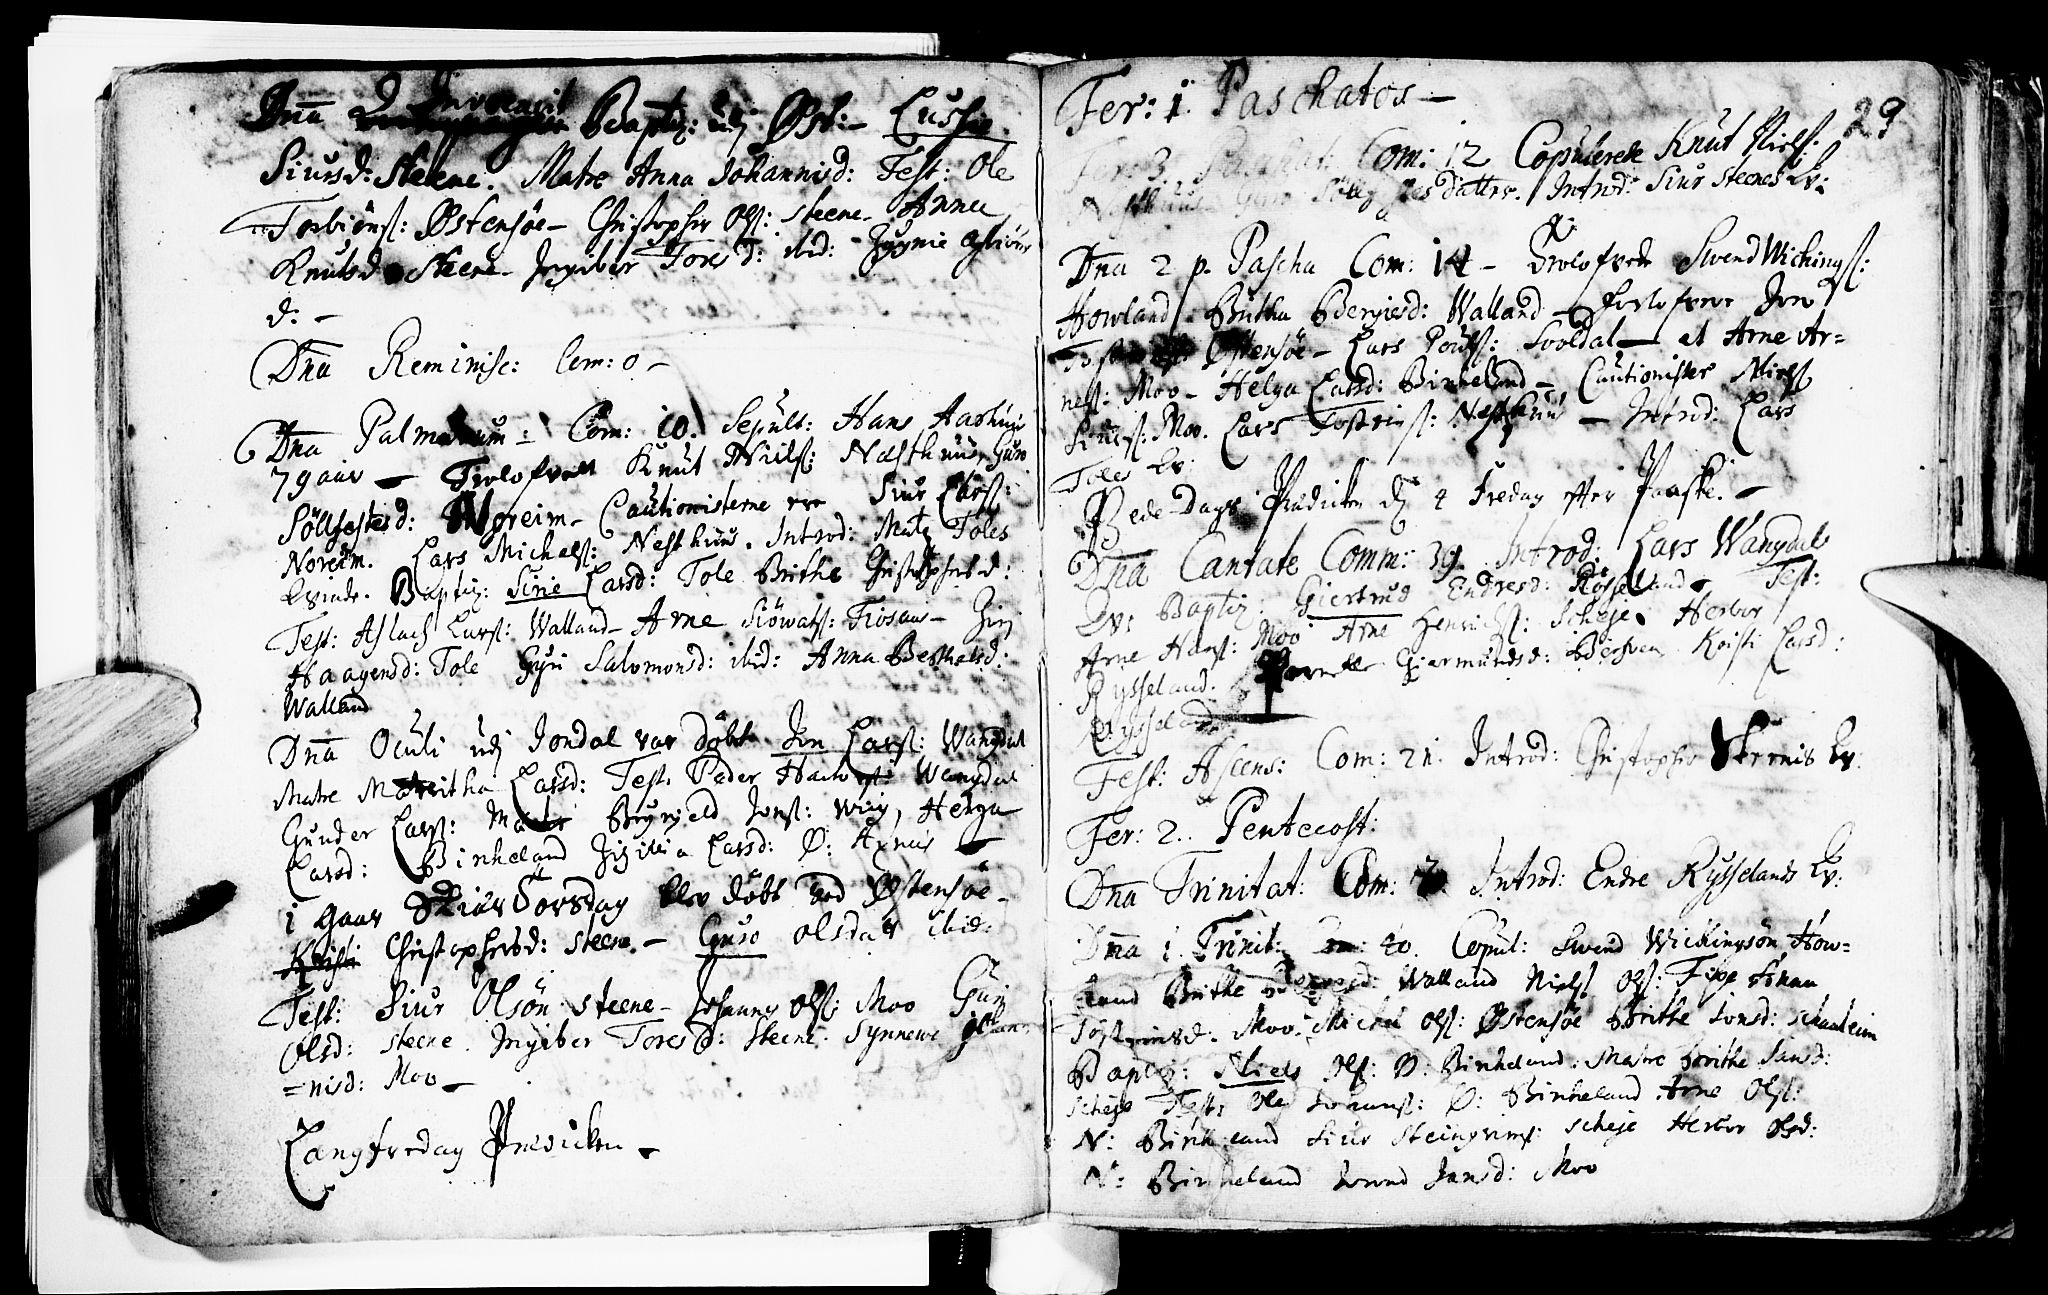 Dna Invocavit Baptiz: udj Øst:
Siursd: Steene. Matre Anna Johannisd: Test: Ole
Torbiöns: Østensöe – Christopher Ols: Steene – Anna
Knutsd Steene – Ingiber Toresd: ibid:
d: –
Dna Reminisc: Com: 0 –
Dna Palmarum: Com: 10. Sepult: Hans
79 aar – Trolofvett Knut Niels: Nesthuus, Guro
Söllfestesd: Noreim – Cautionisterne ere Siur Lars:
Noreim. Lars Michels: Nesthuus. Introd: Matz Toles
kvinde. Baptiz: Sirie Larsd: Tole Brithe Christophersd:
Test: Aslach Lars: Walland – Arne Siöwats: Fiosaas –
Haagensd: Tole Gyri Salomonsd: ibid: Anna Berthelsd:
Walland
Dna Oculi udj Jondal var döbt Jon Lars: Wangdal
Matre Maritha Larsd: Test. Peder Wangdal
Gunder Lars: Brynield Jons: Wiig, Helga
Larsd: Birkeland Larsd: Ø: Axnæs
i gaar Skiær Torsdag blev döbt ved Østensöe –
Kristi Christophersd: Steene. – Guro Olsdatr ibid:
Test: Siur Olsön Steene – Johannes Ols: Moo Guri
Olsd: Steene. Ingiber Toresd: Steene. Synneve Johan
=nisd: Moo –
Langfredag Prediken –
29
Fer: 1. Paschatos –
Fer: 3. Paschat: Com: 12 Copulerede Knut Niels:
Nesthuus Guro Söllfestesdatter. Introd: Siur Steenes kv:
Dna 2 p. Pascha Com: 14 – Trolofvede Svend Wichings:
Howland Britha Bergesd: Walland – forlofvere Jon
Østensöe – Lars Pouls: Soldal – et Arne Ar=
nes: Moo – Helga Larsd: Birkeland – Cautionister Niels
Siurs: Moo. Lars Tosteins: Nesthuus – Introd: Lars
Toles kv:
Bede-Dags Prædiken d: 4 Fredag efter Paaske. –
Dna Cantate Comm: 39. Introd: Lars Wangdals
kv: Baptiz: Giertrud Endresd: Rösseland – Test:
Arne Hans: Moo Arne Henrichs: Scheje. Herbor
Rysseland. Pernelle Giermundsd: Berven Kristi Larsd:
Rysseland
Fest: Ascens: Com: 21. Introd: Christopher Steenis kv:
Fer: 2. Pentecost:
Dna Trinitat: Com: 7. Introd: Endre Rysselands kv:
Dna 1. Trinit: Com: 40. Copul: Svend Wichingsön How=
land Brithe Bergesd: Walland Niels Ols:
Tosteinsd. Moo. Michel Ols: Østensöe Brithe Jonsd: Schaalheim
Baptiz: Niels Ols: Ø. Birkeland. Matre Brithe Jansd:
Scheje Test: Ole Johans: Ø: Birkeland Arne Ols:
N: Birkeland Siur Steingrims: Scheje Herbor Olsd:
N: Birkeland Jansd: Moo